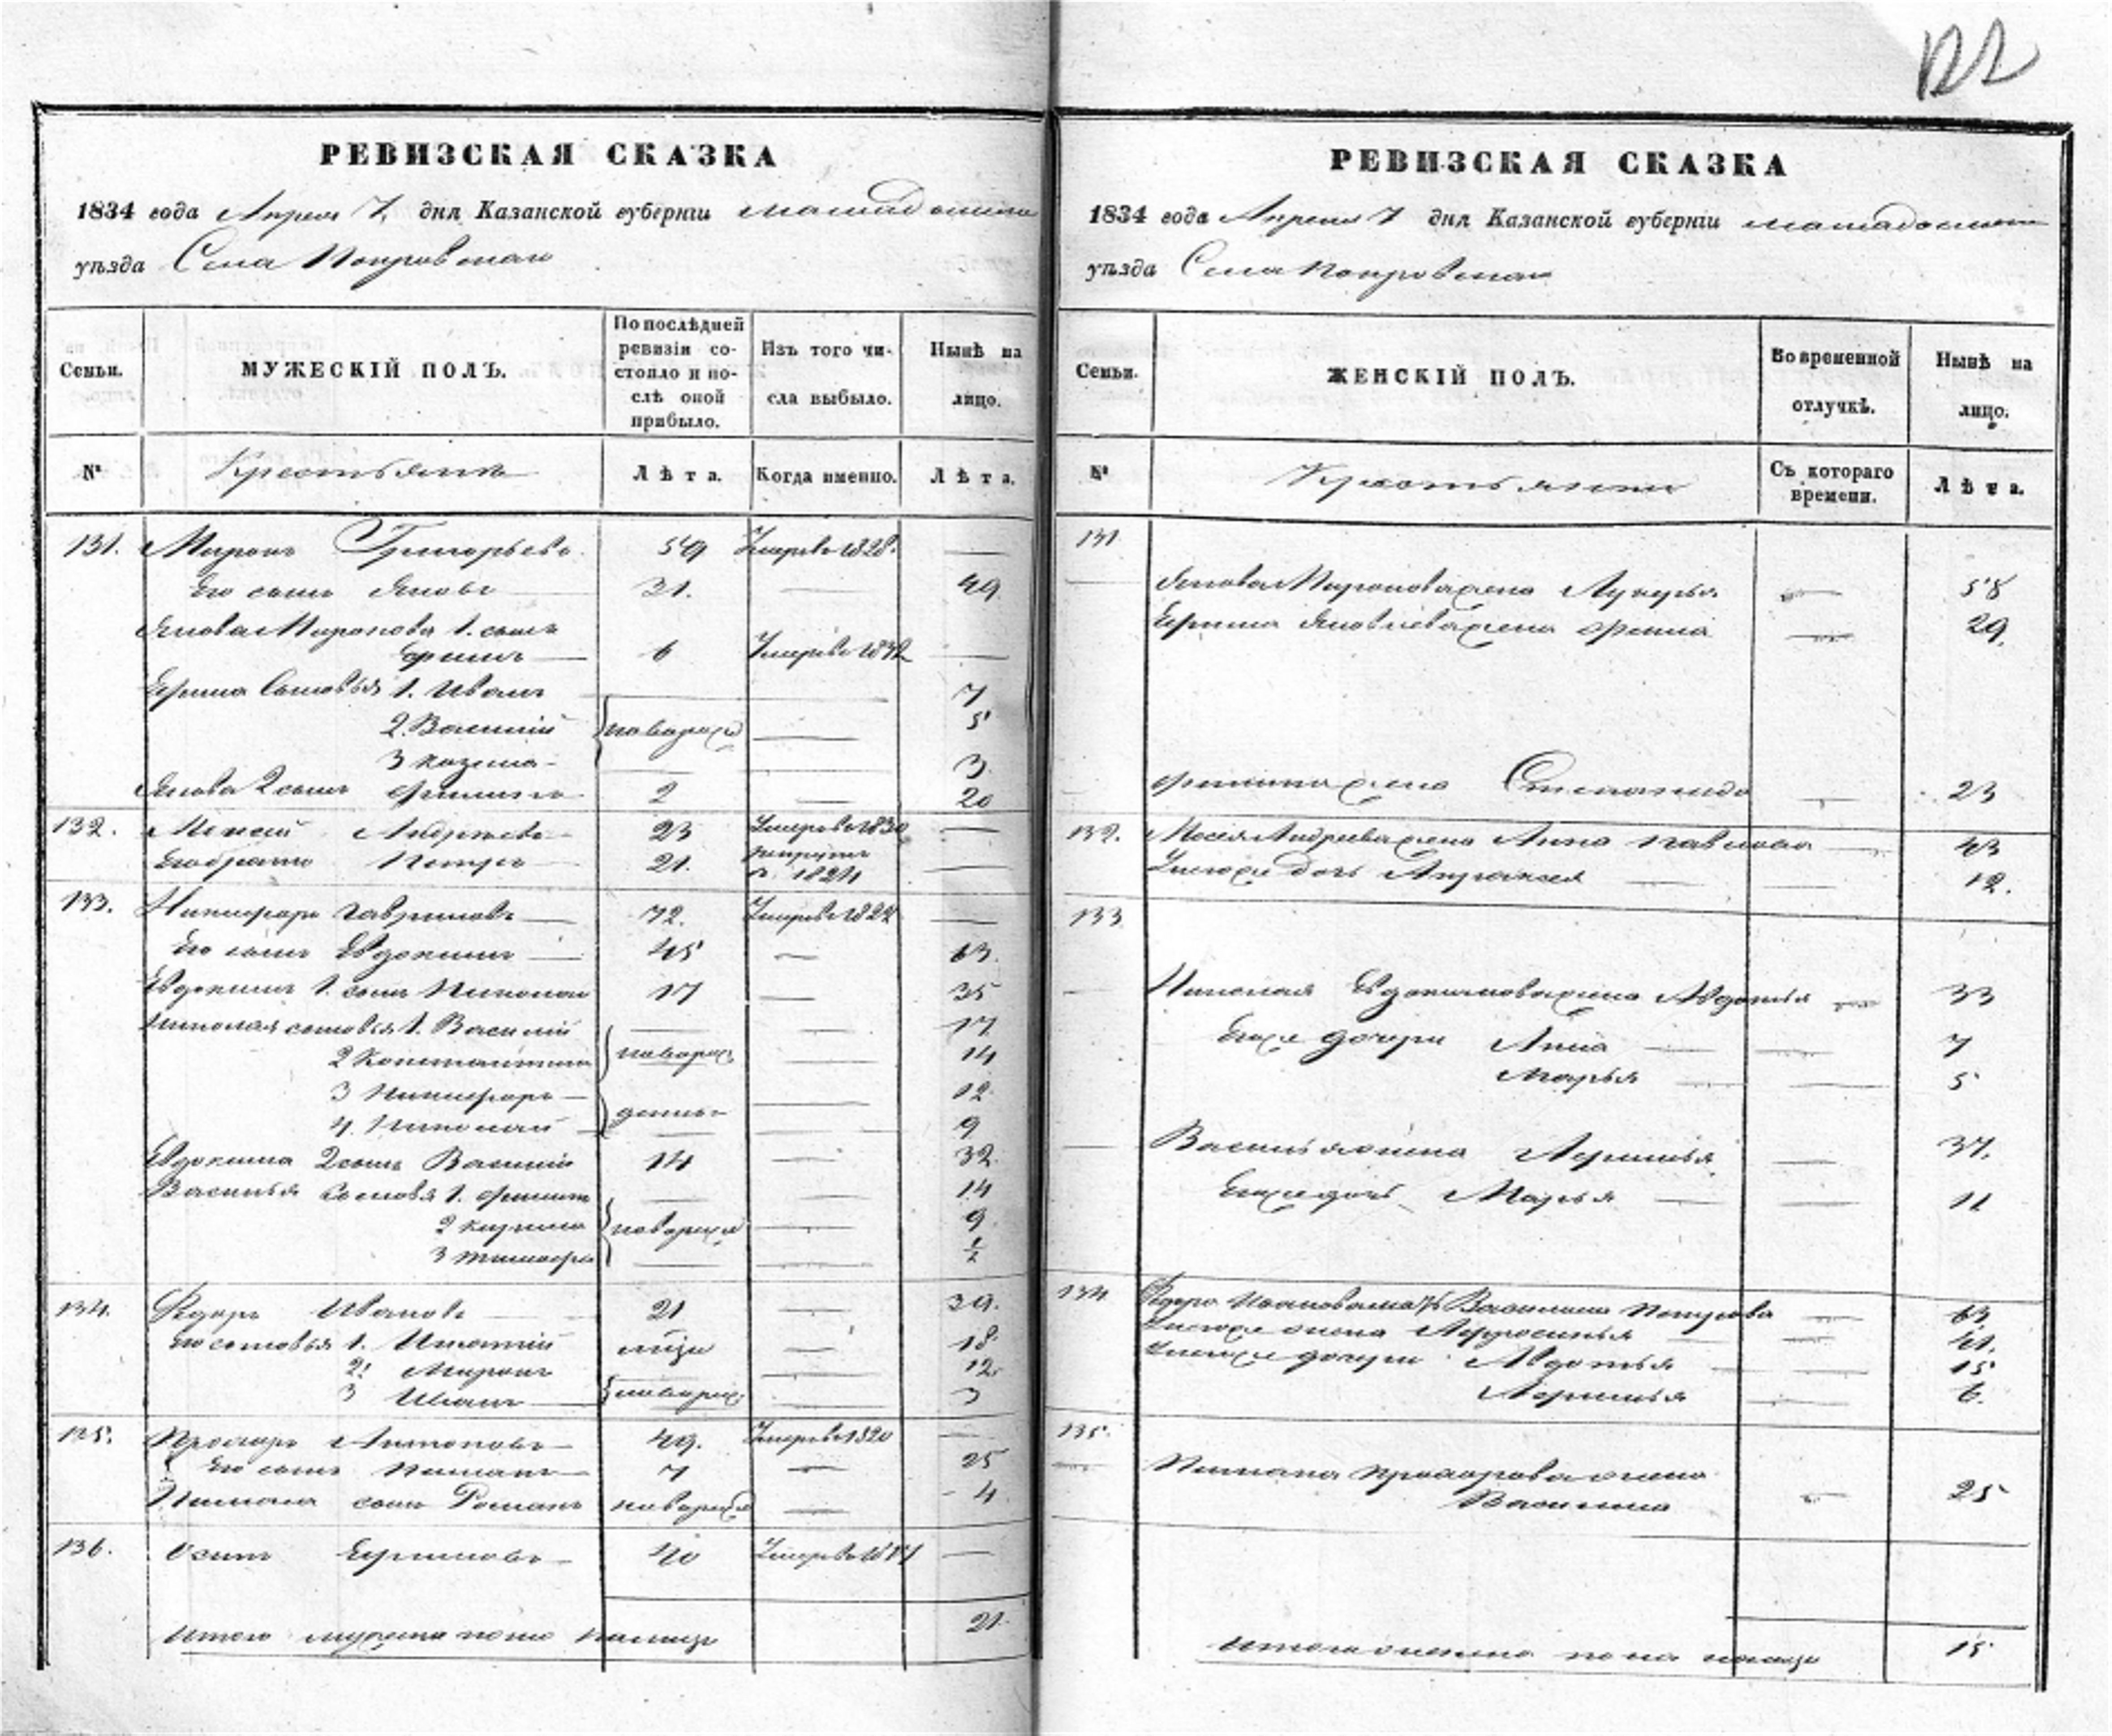 122
РЕВИЗСКАЯ СКАЗКА
1834 года Апреля 7 дня Казанской губерніи мамадышска
уѣзда Села Покровскаго
Семьи.
МУЖЕСКІЙ ПОЛЪ.
По послѣдней ревизіи состояло и послѣ оной прибыло.
Изъ того числа выбыло.
Нынѣ на лицо.
№
Крестьяне
Лѣта.
Когда именно.
Лѣта.
131. Миронъ Григорьевъ 59 Умеръ в 1828.
Его сынъ Яковъ 31. 49
Якова Миронова 1. сынъ
Ефимъ 6 Умеръ в 1832
Ефима Сыновья 1. Иванъ 7
2. Василій новорож 5
3 Козма 3
Якова 2 сынъ Филипъ 2 20
132. Андреевъ 23 Умеръ в 1830
Его братъ Петръ 21. рекруты в 1824
133. Никифоръ Гавриловъ 72. Умеръ в
Его сынъ Евдокимъ 45 63.
Евдокима 1. сынъ Николай 17 35
Николая сыновья 1. Василій 17
2 Константинъ новорож 14
3 Никифоръ 12
4. Николай денъ 9
Евдокима 2 сынъ Василій 14 32
Василья Сыновья 1. Филипъ 14
2 новорож 9
3 Тимофей 1/2
134. Федоръ Ивановъ 21 39.
Его сыновья 1. 18
2. Миронъ 12.
3 Иванъ новорож 3
135. Прохоръ 49. Умеръ в 1820
Его сынъ 7 25
сынъ Романъ новорож 4
136. Осипъ Ефимовъ 40 Умеръ в
Итого мужеска полу налицо 21.
РЕВИЗСКАЯ СКАЗКА
1834 года Апреля 7 дня Казанской губерніи мамадышска
уѣзда Села Покровскаго
Семьи.
ЖЕНСКІЙ ПОЛЪ.
Во временной отлучкѣ.
Нынѣ на лицо.
№
Крестьянки
Съ котораго времени.
Лѣта.
131
Якова Миронова жена Лукерья 58
Ефима Яковлева жена 29.
Филипа жена Степанида 23
132. Андреева жена Анна Павлова 43
дочь 12.
133
Николая Евдокимова жена Авдотья 33
Ихже дочери Анна 7
Марья 5
Василья жена 37.
Ихже дочь Марья 11
134 Федора Иванова мать Василиса Петрова 63
жена Афросинья 41.
дочери Авдотья 15
6.
135.
Прохорова жена
Василиса 25
Итого женска пола налицо 15